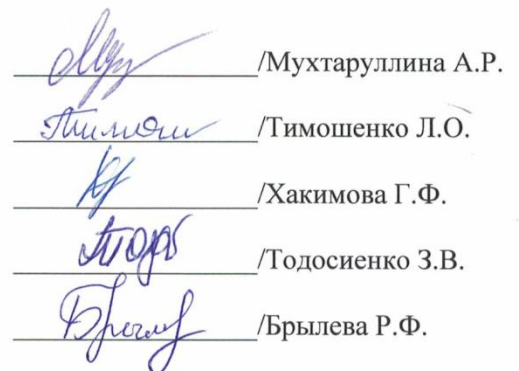 /Мухтаруллина А.Р.
/Тимошенко Л.О.
/Хакимова Г.Ф.
/Тодосиенко З.В.
/Брылева Р.Ф.